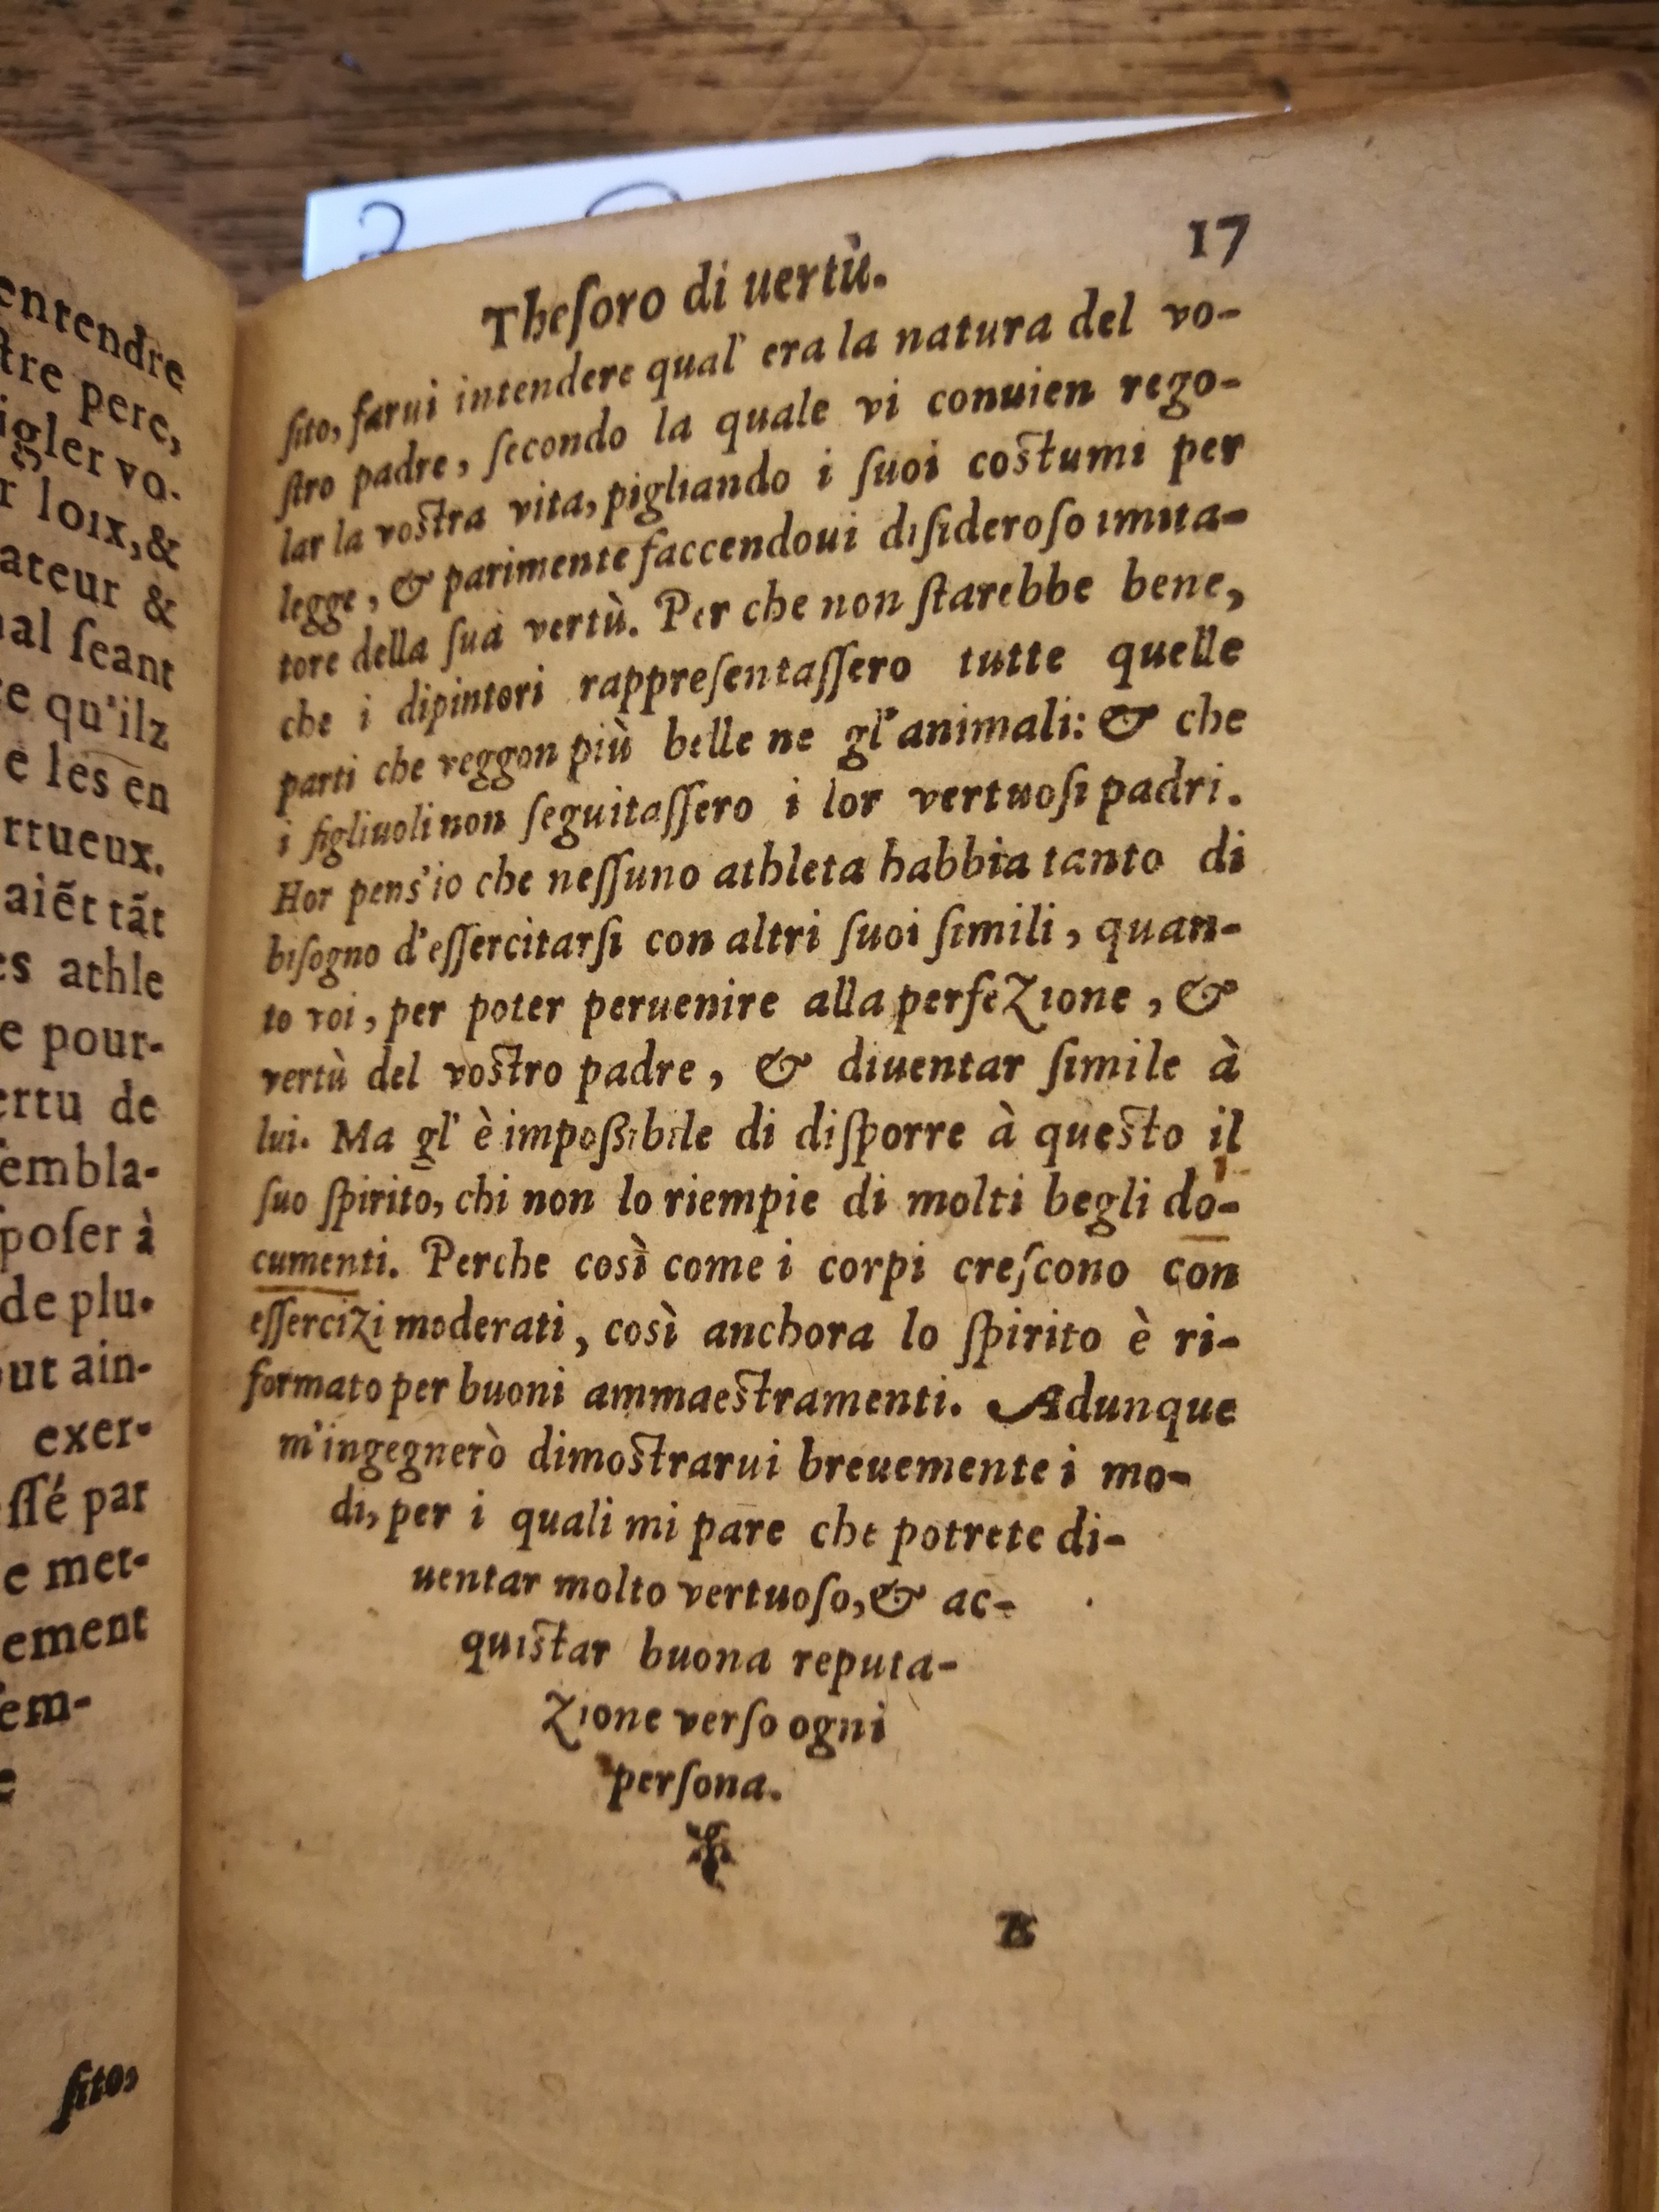 entendre
tre pere,
igler vo-
r loix, &
ateur &
al ſeant
e qu'ilz
e les en
rtueux.
aiẽt tãt
es athle
e pour-
ertu de
embla-
poſer à
de plu-
out ain-
exer-
eſſé par
e met-
ement
ſem-
e
ſito,
2
17
Theſoro di uertù.
ſito, farui intendere qual' era la natura del vo-
ſtro padre, ſecondo la quale vi conuien rego-
lar la voſtra vita, pigliando i ſuoi coſtumi per
legge, & parimente faccendoui diſideroſo imita-
tore della ſua vertù. Per che non ſtarebbe bene,
che i dipintori rappreſentaſſero tutte quelle
parti che veggon più belle ne gl'animali: & che
i figliuoli non ſeguitaſſero i lor vertuoſi padri.
Hor pens'io che neſſuno athleta habbia tanto di
biſogno d'eſſercitarſi con altri ſuoi ſimili, quan-
to voi, per poter peruenire alla perfezione, &
vertù del voſtro padre, & diuentar ſimile à
lui. Ma gl' è impoßibile di diſporre à queſto il
ſuo ſpirito, chi non lo riempie di molti begli do-
cumenti. Perche così come i corpi creſcono con
eſſercizi moderati, così anchora lo ſpirito è ri-
formato per buoni ammaeſtramenti. Adunque
m'ingegnerò dimoſtrarui breuemente i mo-
di, per i quali mi pare che potrete di-
uentar molto vertuoſo, & ac-
quiſtar buona reputa-
zione verſo ogni
perſona.
B